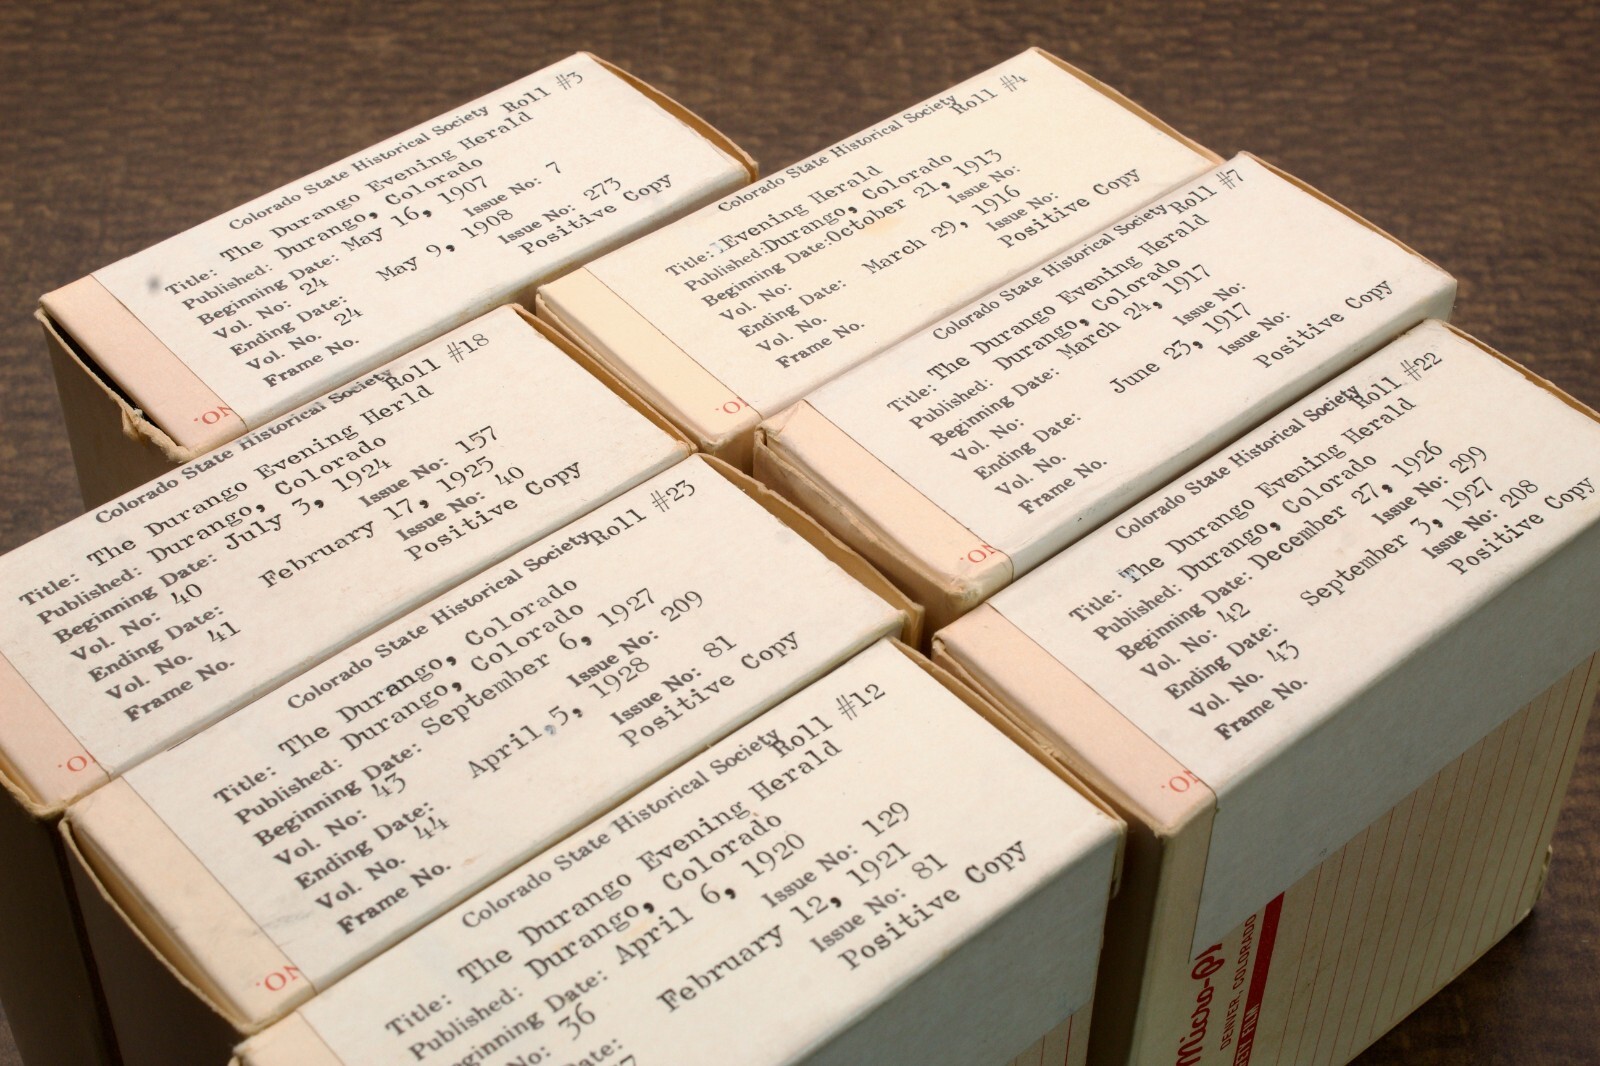 Colorado State Historical Society
Roll #3
Title: The Durango Evening Herald
Published: Durango, Colorado
Beginning Date: May 16, 1907
Vol. No: 24 Issue No: 7
Ending Date: May 9, 1908
Vol. No. 24 Issue No: 273
Frame No. Positive Copy
NO.
Colorado State Historical Society
Roll #4
Title: Evening Herald
Published: Durango, Colorado
Beginning Date: October 21, 1913
Vol. No: Issue No:
Ending Date: March 29, 1916
Vol. No. Issue No:
Frame No. Positive Copy
NO.
Colorado State Historical Society
Roll #7
Title: The Durango Evening Herald
Published: Durango, Colorado
Beginning Date: March 24, 1917
Vol. No: Issue No:
Ending Date: June 23, 1917
Vol. No. Issue No:
Frame No. Positive Copy
NO.
Colorado State Historical Society
Roll #18
Title: The Durango Evening Herld
Published: Durango, Colorado
Beginning Date: July 3, 1924
Vol. No: 40 Issue No: 157
Ending Date: February 17, 1925
Vol. No. 41 Issue No: 40
Frame No. Positive Copy
NO.
Colorado State Historical Society
Roll #22
Title: The Durango Evening Herald
Published: Durango, Colorado
Beginning Date: December 27, 1926
Vol. No: 42 Issue No: 299
Ending Date: September 3, 1927
Vol. No. 43 Issue No: 208
Frame No. Positive Copy
NO.
Colorado State Historical Society
Roll #23
Title: The Durango, Colorado
Published: Durango, Colorado
Beginning Date: September 6, 1927
Vol. No: 43 Issue No: 209
Ending Date: April 5, 1928
Vol. No. 44 Issue No: 81
Frame No. Positive Copy
NO.
Colorado State Historical Society
Roll #12
Title: The Durango Evening Herald
Published: Durango, Colorado
ginning Date: April 6, 1920
No: 36 Issue No: 129
ate: February 12, 1921
Issue No: 81
Positive Copy
Micro-
DENVER, COLORADO
FILM